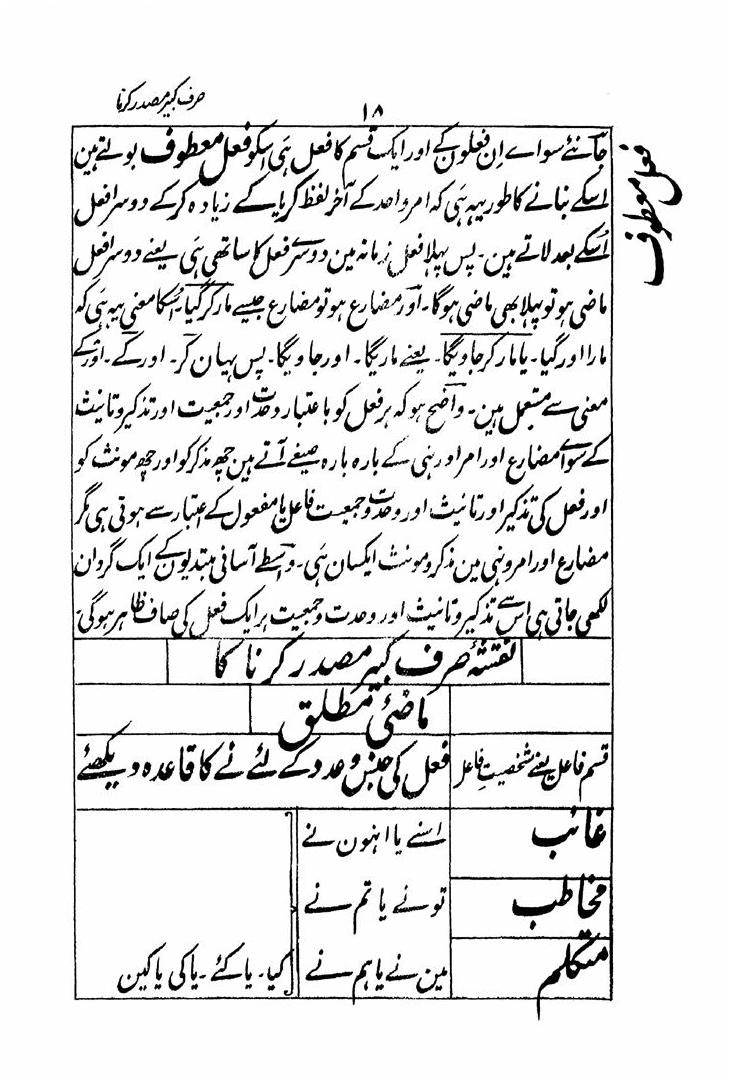 ۱۸
صرف کبیر مصدر کرنا
فعل معطوف
جاننے سواے اِن فعلون کے اور ایک قسم کا فعل ہی اسکو فعل معطوف بولتے ہین
اسکے بنانے کا طور یہہ ہی کہ امر واحد کے آخر لفظ کر یا کے زیادہ کر کے دوسرا فعل
اُسکے بعد لاتے ہین۔ پس پہلا فعل زمانہ مین دوسرے فعل کا ساتھی ہی یعنے دوسرا فعل
ماضی ہو تو پہلا بھی ماضی ہوگا۔ اور مضارع ہو تو مضارع جیسے مار کر گیا۔ اسکا معنی یہہ ہی کہ
مارا اور گیا۔ یا مار کر جاویگا۔ یعنے ماریگا۔ اور جاویگا۔ پس یہان کر۔ اور کے۔ اور کے
معنی سے مستعمل ہین۔ واضح ہو کہ ہر فعل کو باعتبار وحدت اور جمعیت اور تذکیر و تانیث
کے سواے مضارع اور امر اور نہی کے بارہ بارہ صیغے آتے ہین چھہ مذکر کو اور چھہ مونث کو
اور فعل کی تذکیر اور تانیث اور وحدت و جمعیت فاعل یا مفعول کے اعتبار سے ہوتی ہی مگر
مضارع اور امر و نہی مین مذکر و مونث ایکسان ہی۔ واسطے آسانی مبتدیون کے ایک گردان
لکھی جاتی ہی اس سے تذکیر و تانیث اور وحدت و جمعیت ہر ایک فعل کی صاف ظاہر ہوگی
نقشۂ صرف کبیر مصدر کرنا کا
ماضئ مطلق
قسم فاعل یعنے شخصیتِ فاعل فعل کی جنس و عدد کے لئے نے کا قاعدہ دیکھئے
غائب اسنے یا انہون نے
مخاطب تونے یا تم نے
متکلم مین نے یا ہم نے کیا۔ یا کئے۔ یا کی یا کین